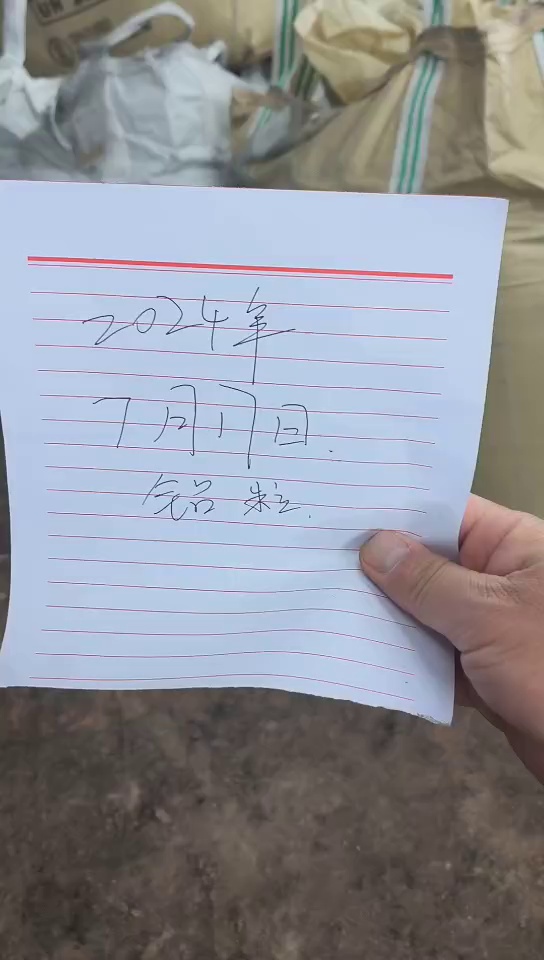 UN
2024年
7月17日.
铝粒.